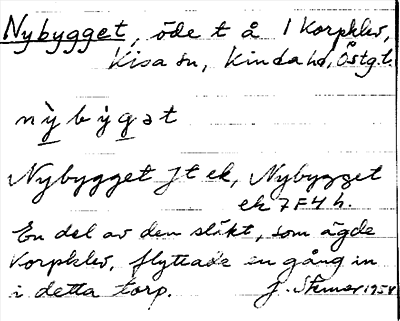 Nybygget, öde t å 1 Korpklev,
Kisa sn, Kinda hd, Östg.l.
nỳbỳgət
Nybygget Jt ek, Nybygget
ek 7F4h.
En del av den släkt, som ägde
Korpklev, flyttade en gång in
i detta torp. J. Stenser 1954